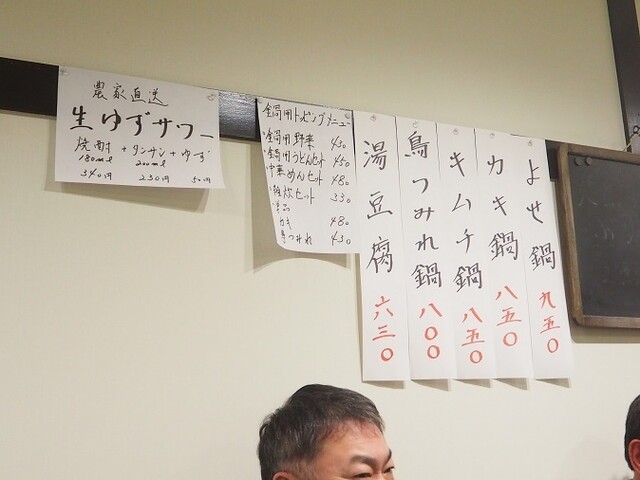 農家直送
生ゆずサワー
焼酎 + タンサン + ゆず
180ml 200ml
340円 230円 50円
全鍋用トッピングメニュー
全鍋用野菜 430
全鍋用うどんセット 450
中華めんセット 480
雑炊セット 330
単品
カキ 480
鳥つみれ 430
湯豆腐 六三〇
鳥つみれ鍋 八〇〇
キムチ鍋 八五〇
カキ鍋 八五〇
よせ鍋 九五〇